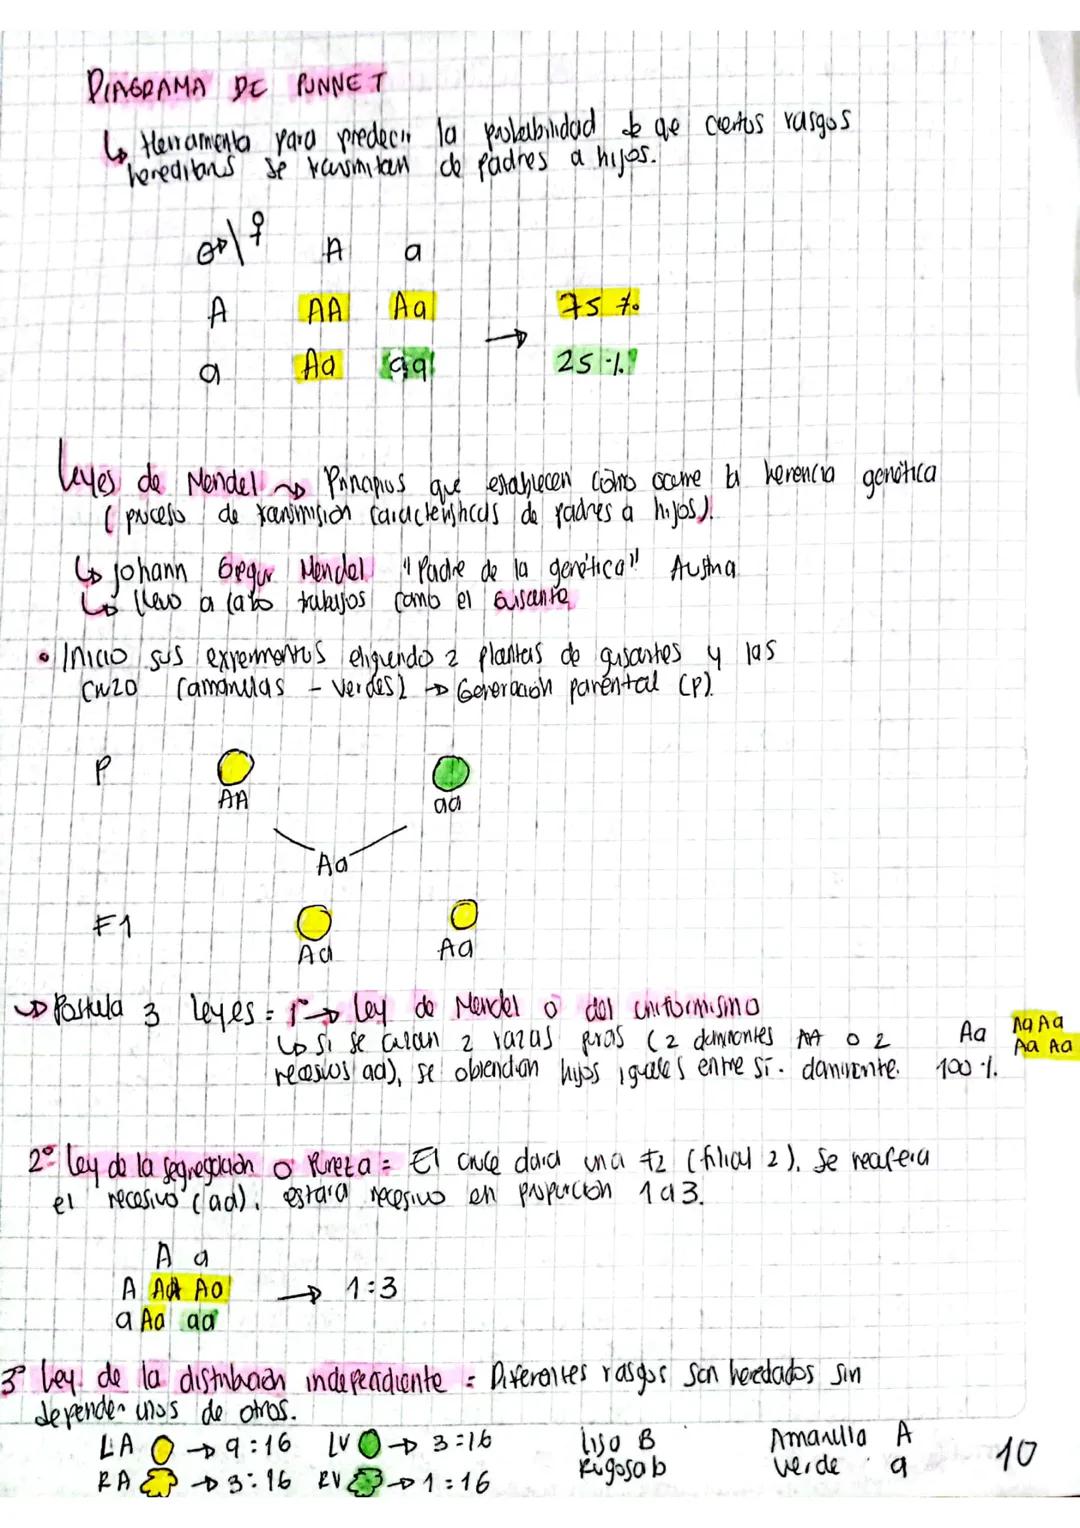 DIAGRAMA DE PUNNET
↳ Herramienta para predecir la probabilidad de que ciertos rasgos
hereditarios se transmitan de padres a hijos.
♂\♀ A a
A AA Aa → 75 %
a Aa aa 25 %
Leyes de Mendel ~> Principios que establecen cómo ocurre la herencia genética
(proceso de transmisión características de padres a hijos).
↳ Johann Gregor Mendel "Padre de la genética" Austria
↳ llevo a cabo trabajos como el guisante
• Inicio sus experimentos eligiendo 2 plantas de guisantes y las
cruzo (amarillas - verdes) → Generación parental (P).
P
AA aa
Aa
F1
Aa Aa
→ Postula 3 leyes = 1º → Ley de Mendel o del uniformismo
↳ Si se cruzan 2 razas puras (2 dominantes AA o 2
recesivos aa), se obtendran hijos iguales entre sí. dominante.
Aa Aa Aa
100 % Aa Aa
2º Ley de la segregación o Pureza = El cruce dara una F2 (filial 2). Se
el recesivo (aa). estará recesivo en proporción 1 a 3.
A a
A AA Aa → 1:3
a Aa aa
3º Ley de la distribución independiente = Diferentes rasgos son heredados sin
depender unos de otros.
LA → 9:16 LV → 3:16 Liso B Amarillo A
RA → 3:16 RV → 1:16 Rigosa b verde a
10